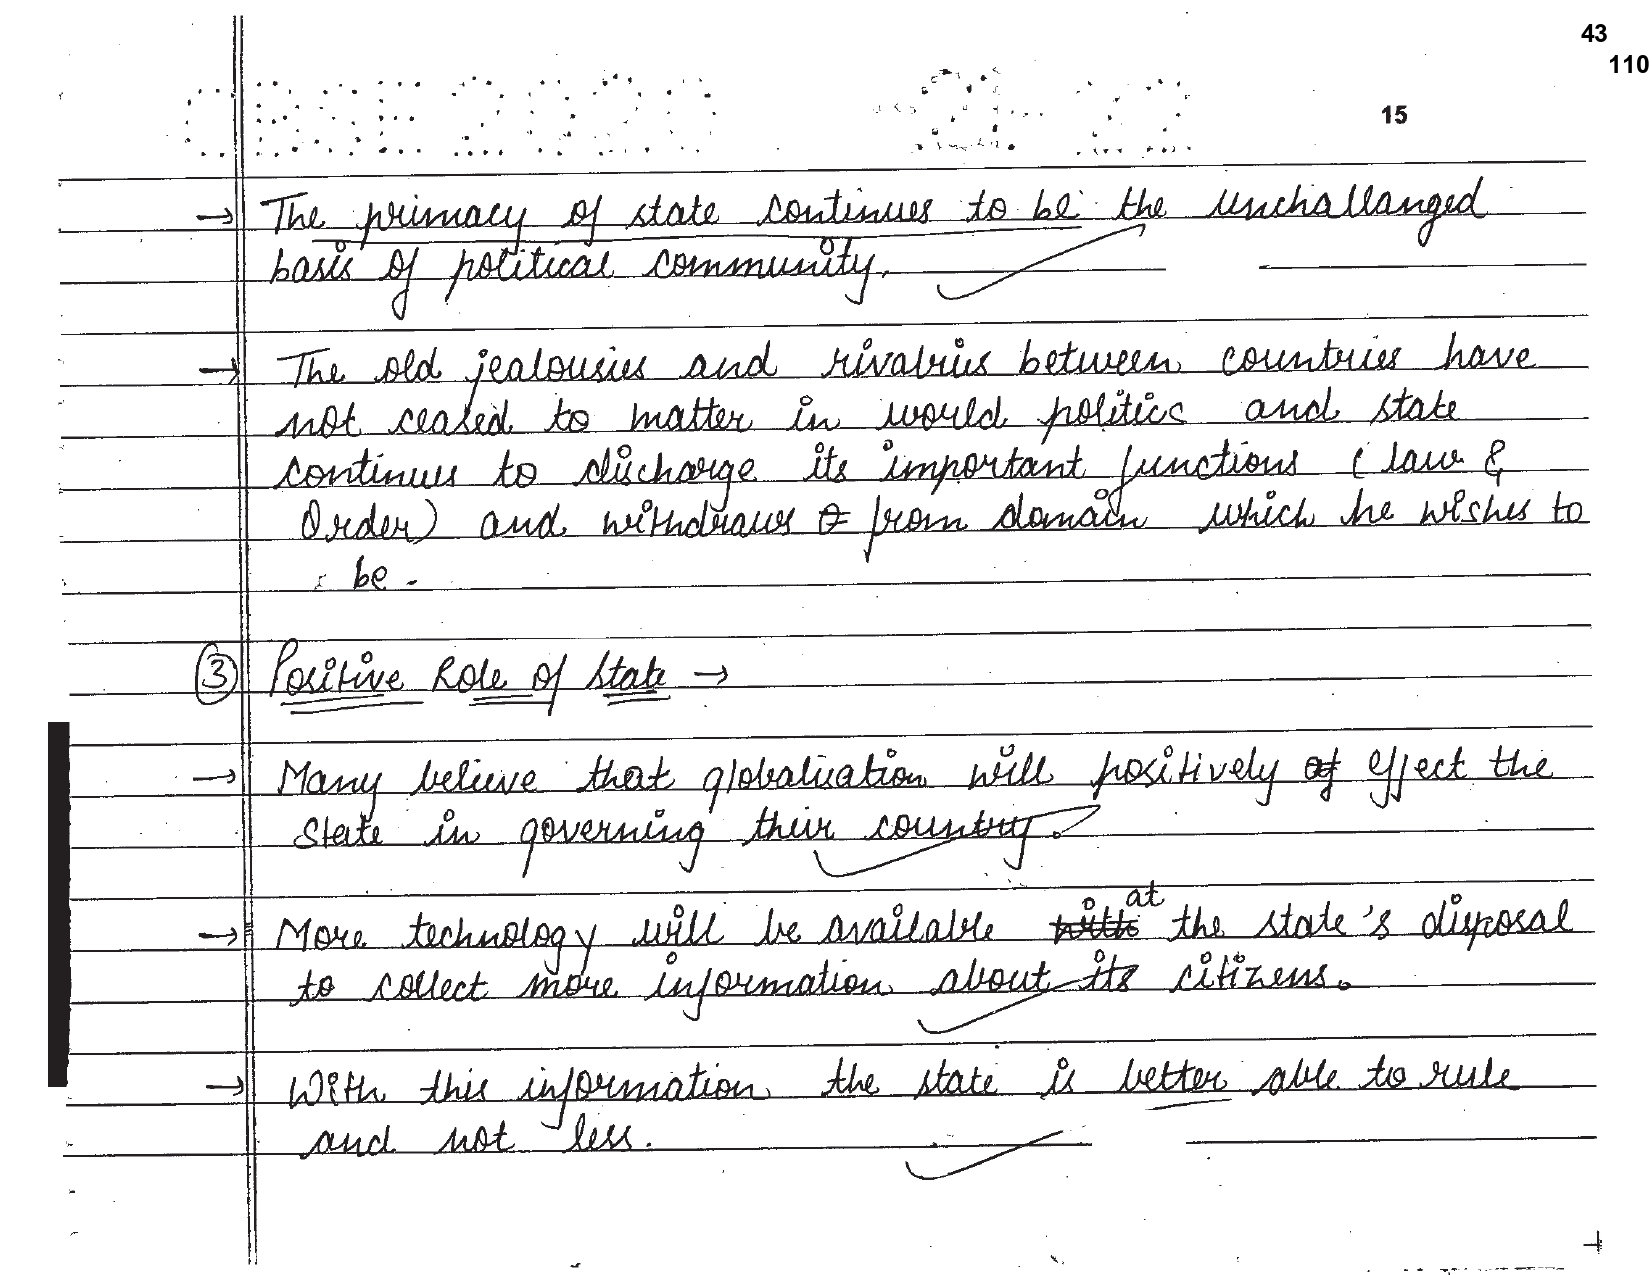 43
110
CBSE 2020
15
→ The primacy of state continues to be the unchallanged
basis of political community.
→ The old jealousies and rivalries between countries have
not ceased to matter in world politics and state
continues to discharge its important functions ( law &
Order) and withdraws from domain which he wishes to
be.
③ Positive Role of State →
→ Many believe that globalisation will positively effect the
State in governing their country.
→ More technology will be available at the state's disposal
to collect more information about its citizens.
→ With this information the state is better able to rule
and not less.